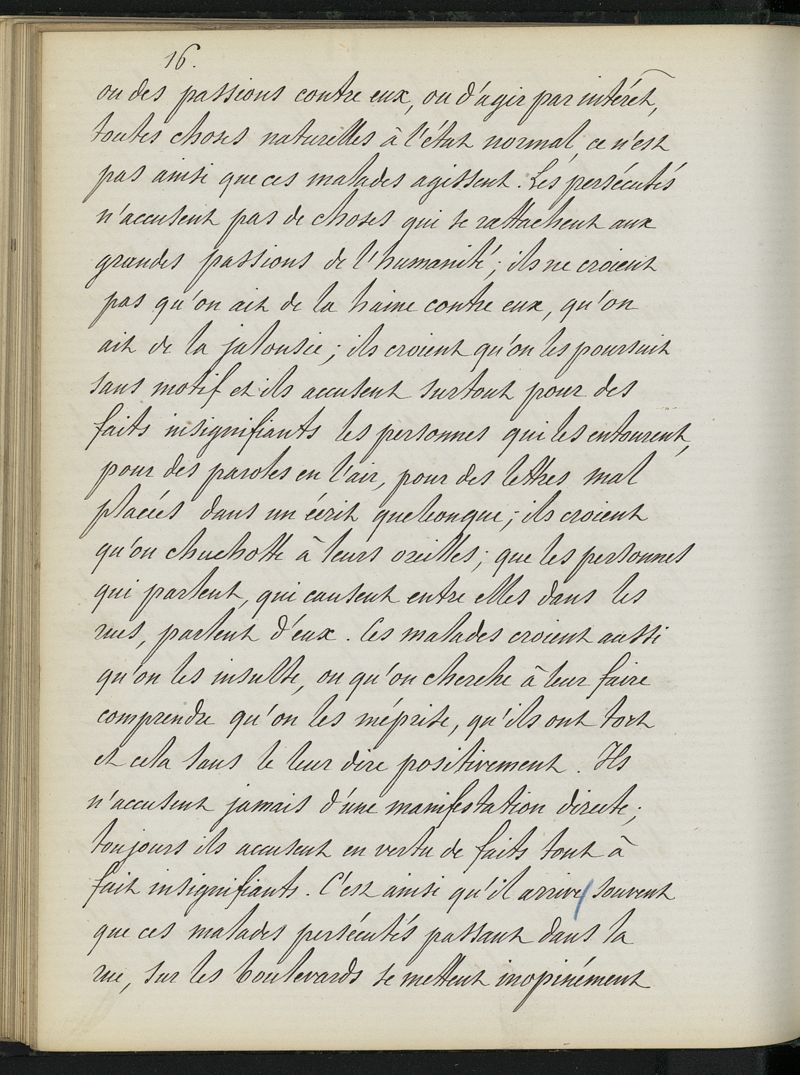 16.
ou des passions contre eux, ou d'agir par intérêt,
toutes choses naturelles à l'état normal, ce n'est
pas ainsi que ces malades agissent. Les persécutés
n'accusent pas de choses qui se rattachent aux
grandes passions de l'humanité ; ils ne croient
pas qu'on ait de la haine contre eux, qu'on
ait de la jalousie ; ils croient qu'on les poursuit
sans motif et ils accusent surtout pour des
faits insignifiants les personnes qui les entourent,
pour des paroles en l'air, pour des lettres mal
placées dans un écrit quelconque ; ils croient
qu'on chuchotte à leurs oreilles ; que les personnes
qui parlent, qui causent entre elles dans les
rues, parlent d'eux. Ces malades croient aussi
qu'on les insulte, ou qu'on cherche à leur faire
comprendre qu'on les méprise, qu'ils ont tort
et cela sans le leur dire positivement. Ils
n'accusent jamais d'une manifestation directe ;
toujours ils accusent en vertu de faits tout à
fait insignifiants. C'est ainsi qu'il arrive souvent
que ces malades persécutés passant dans la
rue, sur les boulevards se mettent inopinément